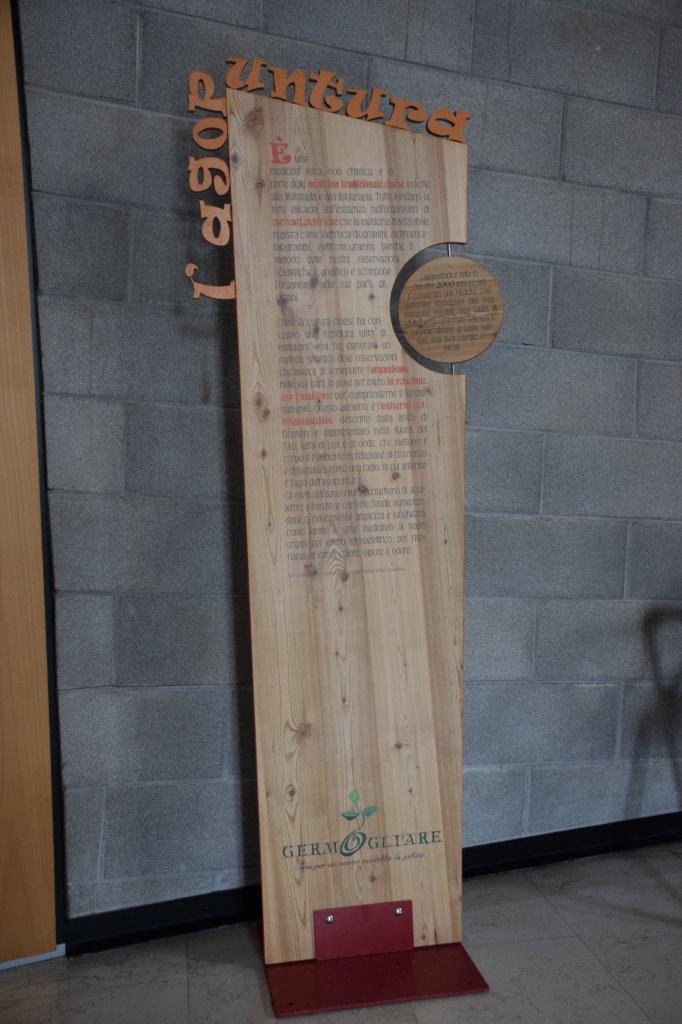 l'agopuntura
È una
medicina fisica, non chimica, e fa
parte della medicina tradizionale cinese insieme
alla fitoterapia e alla litoterapia. Tutte fondano la
loro efficacia sull'esistenza nell'organismo di
correnti elettriche che la medicina tradizionale
registra come elettrocardiogrammi, elettroence-
falogrammi, elettromiogrammi, perché il
metodo delle nostre osservazioni
scientifiche è analitico e scompone
l'organismo nelle sue parti, gli
organi.
Come la cultura cinese ha con-
cepito una scrittura fatta di
immagini, così ha elaborato un
metodo sintetico delle osservazioni
che invece di scomporre l'organismo
nelle sue parti, lo pone per intero in relazione
con l'ambiente per comprenderne il funzio-
namento. Questo ambiente è l'universo elet-
tromagnetico, descritto dalla fisica di
Einstein, e rappresentato nella figura del
TAO, fatta di poli e di onde, che mettono il
corpo e l'ambiente in relazione di risonanza
e dissonanza come una radio, la cui antenna
è l'ago dell'agopuntura.
Gli effetti dell'agopuntura permettono di acce-
lerare e frenare le correnti d'onda, aumentan-
done o riducendone ampiezza e lunghezza,
come fanno le erbe medicinali ai nostri
organi per effetto termoelettrico, per riso-
nanza di forma, colore, sapore e odore.
L'agopuntura è nata in
2000 anni
è considerata una Medicina Com-
GERMOGLIARE
per un nuovo modello di salute